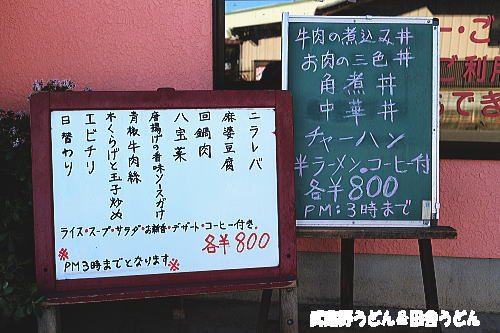 牛肉の煮込み丼
お肉の三色丼
角煮丼
中華丼
チャーハン
半ラーメン・コーヒー付
各¥800
PM:3時まで
ニラレバ
麻婆豆腐
回鍋肉
八宝菜
唐揚げの香味ソースがけ
青椒牛肉絲
木くらげと玉子炒め
エビチリ
日替わり
ライス・スープ・サラダ・お新香・デザート・コーヒー付き.
各¥800
※PM3時までとなります※
・ご
ご利用
でき
武蔵野うどん&田舎うどん